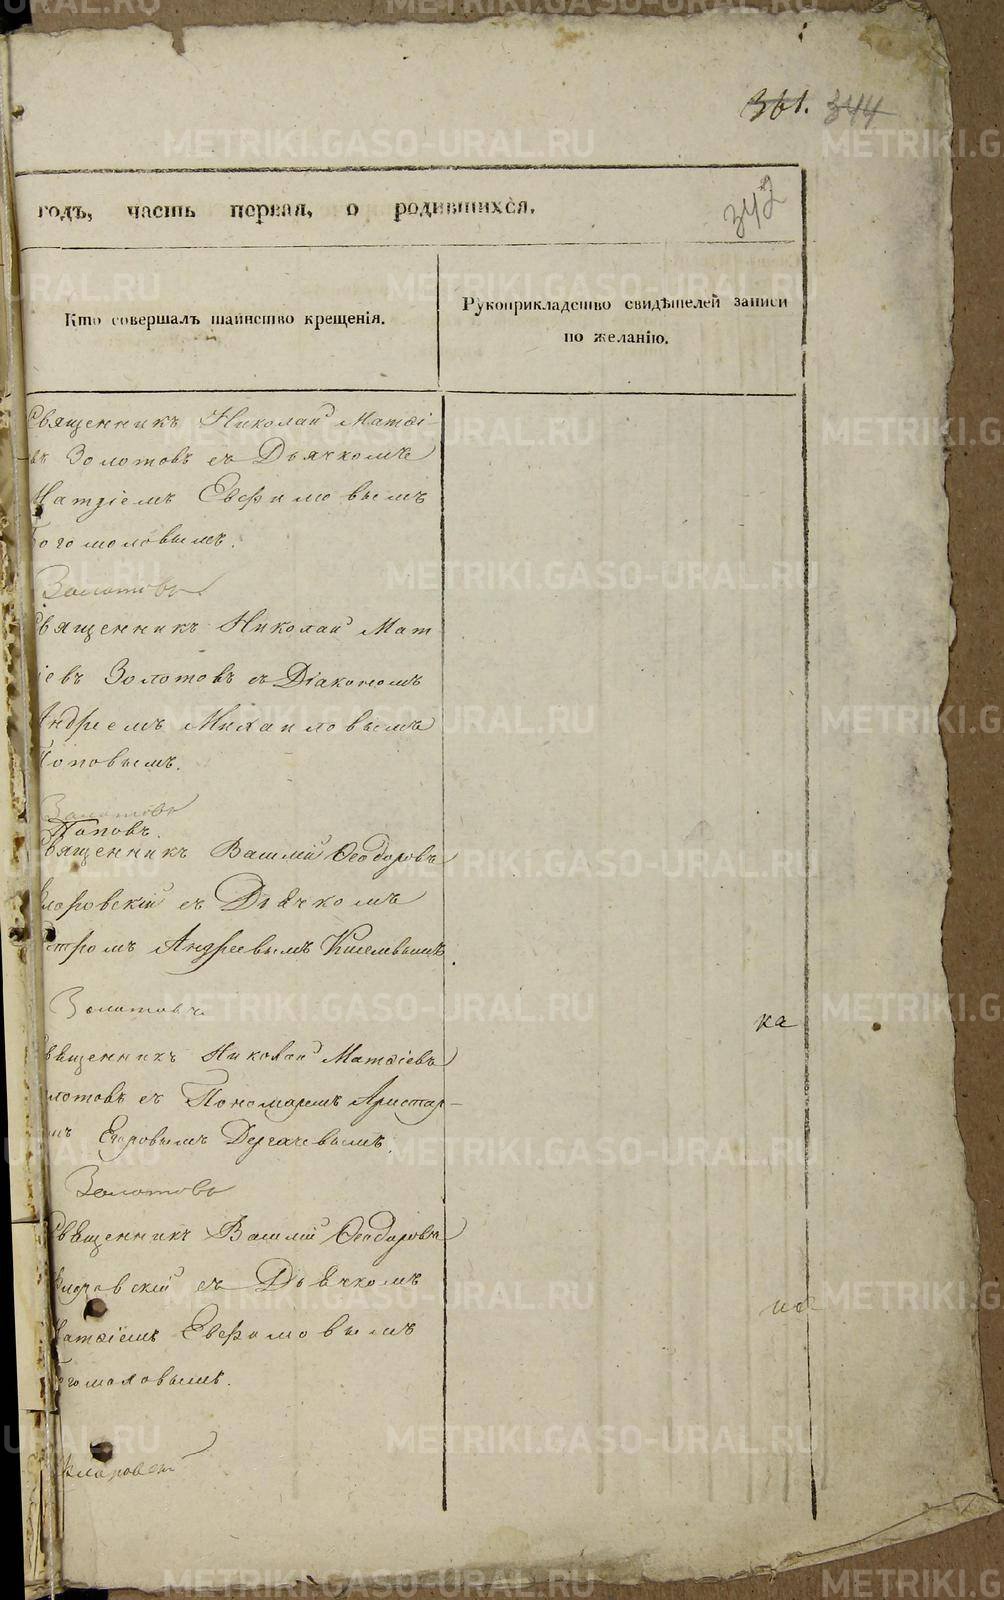 361. 344
342
годъ, часть первая, о родившихся.
Кто совершалъ таинство крещенія.
Рукоприкладство свидѣтелей записи
по желанію.
Священникъ Николай Матѳі-
въ Золотовъ съ Дьячкомъ
Матѳіемъ Евфимовымъ
Богомоловымъ.
Золотовъ
Священникъ Николай Мат
іевъ Золотовъ съ Діакономъ
Андреемъ Михаиловымъ
Поповымъ.
Золотовъ
Поповъ.
Священникъ Василій Ѳеодоровъ
клоровскій съ Дьячкомъ
Петромъ Андреевымъ Киселевымъ.
Золотовъ
Священникъ Николай Матѳіевъ
Золотовъ съ Пономаремъ Аристар-
мъ Егоровымъ Дергачевымъ.
Золотовъ
Священникъ Василій Ѳеодоровъ
съ Дьячкомъ
Матѳіемъ Евфимовымъ
Богомоловымъ.
ка
METRIKI.GASO-URAL.RU